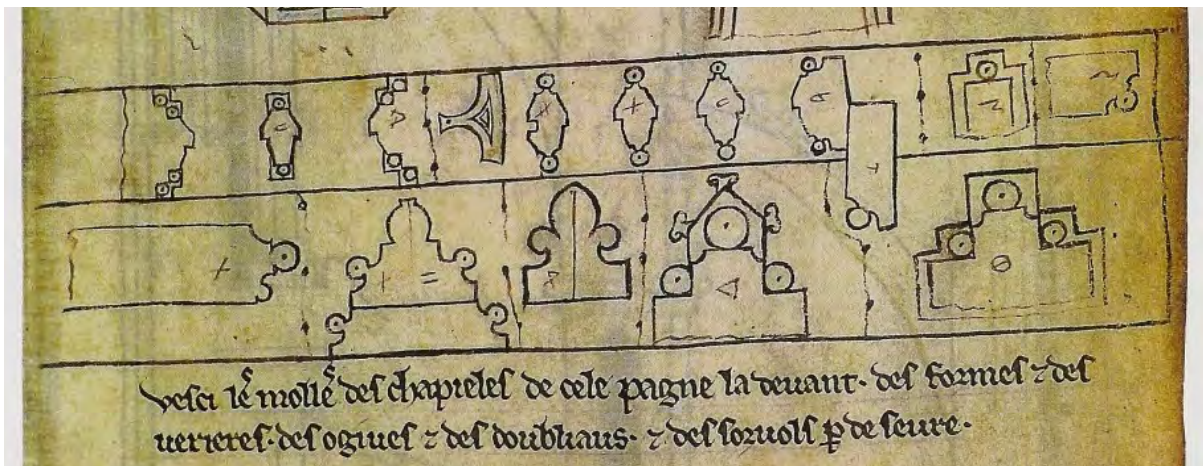 vesci leˢ molleˢ des chapieles de cele pagne la deuant. des formes ⁊ des
uerieres. des ogiues ⁊ des doubliaus. ⁊ des soruols ꝑ de seure.